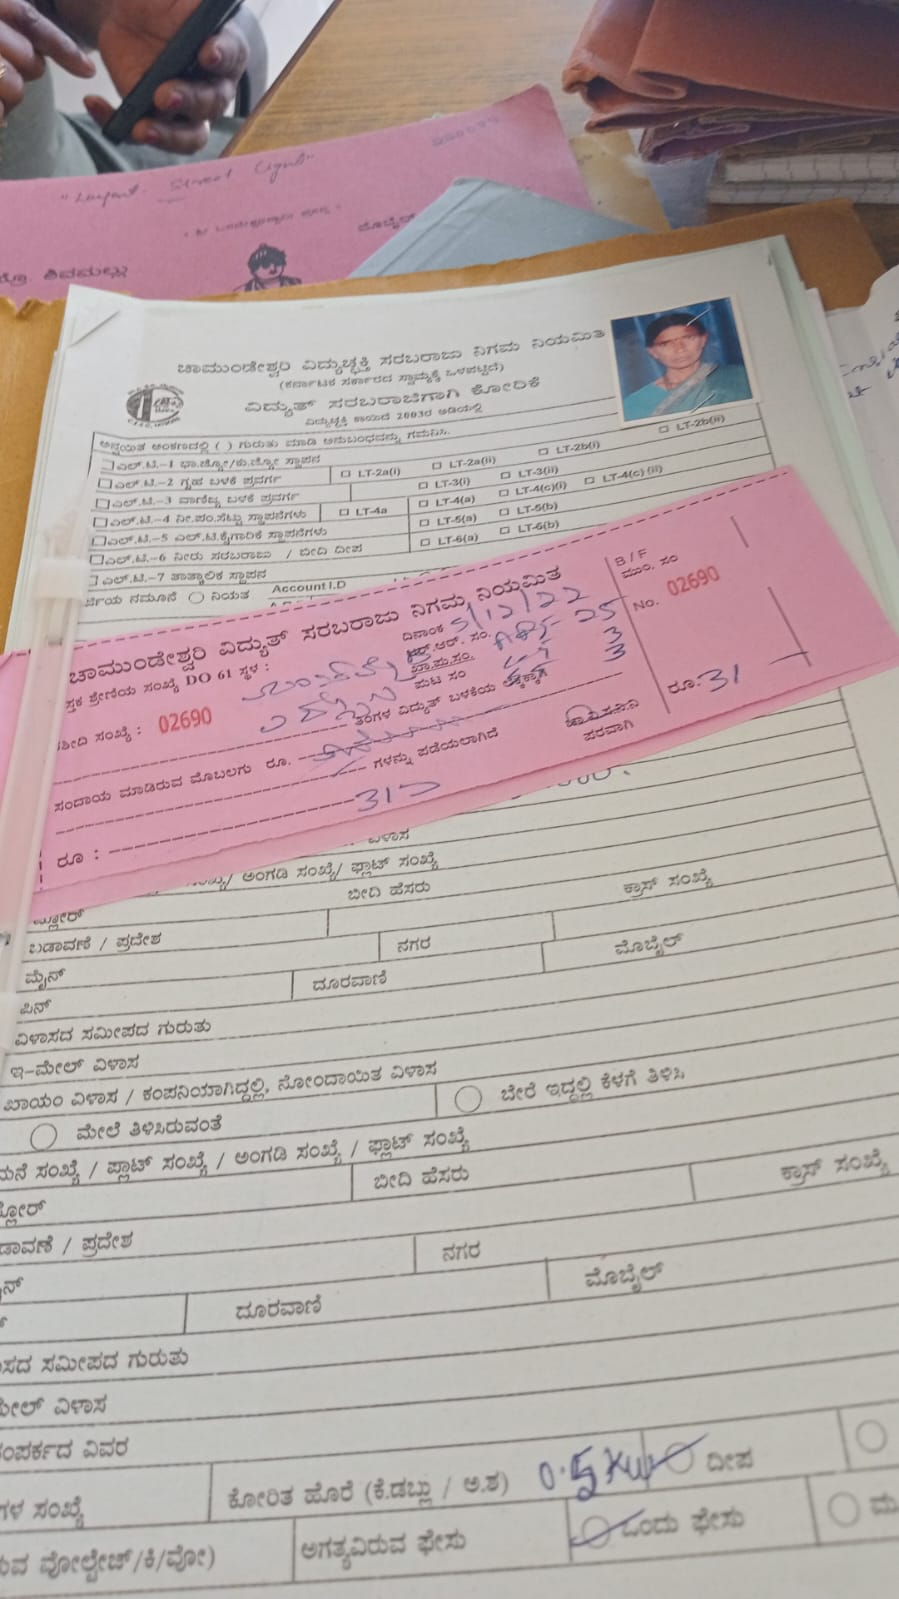 "Layout Street Light"
ಮೊಬೈಲ್
ಶಿವಮಲ್ಲು
ಚಾಮುಂಡೇಶ್ವರಿ ವಿದ್ಯುಚ್ಛಕ್ತಿ ಸರಬರಾಜು ನಿಗಮ ನಿಯಮಿತ
(ಕರ್ನಾಟಕ ಸರ್ಕಾರದ ಸ್ವಾಮ್ಯಕ್ಕೆ ಒಳಪಟ್ಟಿದೆ)
ವಿದ್ಯುತ್ ಸರಬರಾಜಿಗಾಗಿ ಕೋರಿಕೆ
ವಿದ್ಯುಚ್ಛಕ್ತಿ ಕಾಯಿದೆ 2003ರ ಅಡಿಯಲ್ಲಿ
ಅನ್ವಯಿತ ಅಂಕಣದಲ್ಲಿ ( ) ಗುರುತು ಮಾಡಿ ಅನುಬಂಧವನ್ನು ಗಮನಿಸಿ.
ಎಲ್.ಟಿ.-1 ಭಾ.ಜ್ಯೋ/ಕು.ಜ್ಯೋ ಸ್ಥಾಪನ
ಎಲ್.ಟಿ.-2 ಗೃಹ ಬಳಕೆ ಪ್ರವರ್ಗ LT-2a(i) LT-2a(ii) LT-2b(i) LT-2b(ii)
ಎಲ್.ಟಿ.-3 ವಾಣಿಜ್ಯ ಬಳಕೆ ಪ್ರವರ್ಗ LT-3(i) LT-3(ii)
ಎಲ್.ಟಿ.-4 ನೀ.ಪಂ.ಸೆಟ್ಟು ಸ್ಥಾಪನೆಗಳು LT-4a LT-4(a) LT-4(c)(i) LT-4(c)(ii)
ಎಲ್.ಟಿ.-5 ಎಲ್.ಟಿ.ಕೈಗಾರಿಕೆ ಸ್ಥಾಪನೆಗಳು LT-5(a) LT-5(b)
ಎಲ್.ಟಿ.-6 ನೀರು ಸರಬರಾಜು / ಬೀದಿ ದೀಪ LT-6(a) LT-6(b)
ಎಲ್.ಟಿ.-7 ತಾತ್ಕಾಲಿಕ ಸ್ಥಾಪನ
ನಮೂನೆ ನಿಯತ Account I.D
ಚಾಮುಂಡೇಶ್ವರಿ ವಿದ್ಯುತ್ ಸರಬರಾಜು ನಿಗಮ ನಿಯಮಿತ B/F
ಶ್ರೇಣಿಯ ಸಂಖ್ಯೆ DO 61 ಸ್ಥಳ : ದಿನಾಂಕ 5/12/22
ಆರ್.ಆರ್. ಸಂ. No. 02690
ಸಂಖ್ಯೆ : 02690 ಪುಟ ಸಂ
ತಿಂಗಳ ವಿದ್ಯುತ್ ಬಳಕೆಯ ಲೆಕ್ಕಕ್ಕಾಗಿ
ಸಂದಾಯ ಮಾಡಿರುವ ಮೊಬಲಗು ರೂ.
ಗಳನ್ನು ಪಡೆಯಲಾಗಿದೆ ಪರವಾಗಿ ರೂ. 31
ರೂ :
ವಿಳಾಸ
ಅಂಗಡಿ ಸಂಖ್ಯೆ/ ಫ್ಲಾಟ್ ಸಂಖ್ಯೆ
ಫ್ಲೋರ್ ಬೀದಿ ಹೆಸರು ಕ್ರಾಸ್ ಸಂಖ್ಯೆ
ಬಡಾವಣೆ / ಪ್ರದೇಶ ನಗರ
ಮೈನ್
ಪಿನ್ ದೂರವಾಣಿ ಮೊಬೈಲ್
ವಿಳಾಸದ ಸಮೀಪದ ಗುರುತು
ಇ-ಮೇಲ್ ವಿಳಾಸ
ಖಾಯಂ ವಿಳಾಸ / ಕಂಪನಿಯಾಗಿದ್ದಲ್ಲಿ, ನೋಂದಾಯಿತ ವಿಳಾಸ
ಮೇಲೆ ತಿಳಿಸಿರುವಂತೆ ಬೇರೆ ಇದ್ದಲ್ಲಿ ಕೆಳಗೆ ತಿಳಿಸಿ
ಮನೆ ಸಂಖ್ಯೆ / ಪ್ಲಾಟ್ ಸಂಖ್ಯೆ / ಅಂಗಡಿ ಸಂಖ್ಯೆ / ಫ್ಲಾಟ್ ಸಂಖ್ಯೆ
ಫ್ಲೋರ್ ಬೀದಿ ಹೆಸರು ಕ್ರಾಸ್ ಸಂಖ್ಯೆ
ಬಡಾವಣೆ / ಪ್ರದೇಶ ನಗರ
ದೂರವಾಣಿ ಮೊಬೈಲ್
ಸಮೀಪದ ಗುರುತು
ಮೇಲ್ ವಿಳಾಸ
ಸಂಪರ್ಕದ ವಿವರ
ಸಂಖ್ಯೆ ಕೋರಿತ ಹೊರೆ (ಕೆ.ಡಬ್ಲು / ಅ.ಶ) 0.5 KW ದೀಪ
ವೋಲ್ಟೇಜ್/ಕಿ/ವೋ) ಅಗತ್ಯವಿರುವ ಫೇಸು ಒಂದು ಫೇಸು